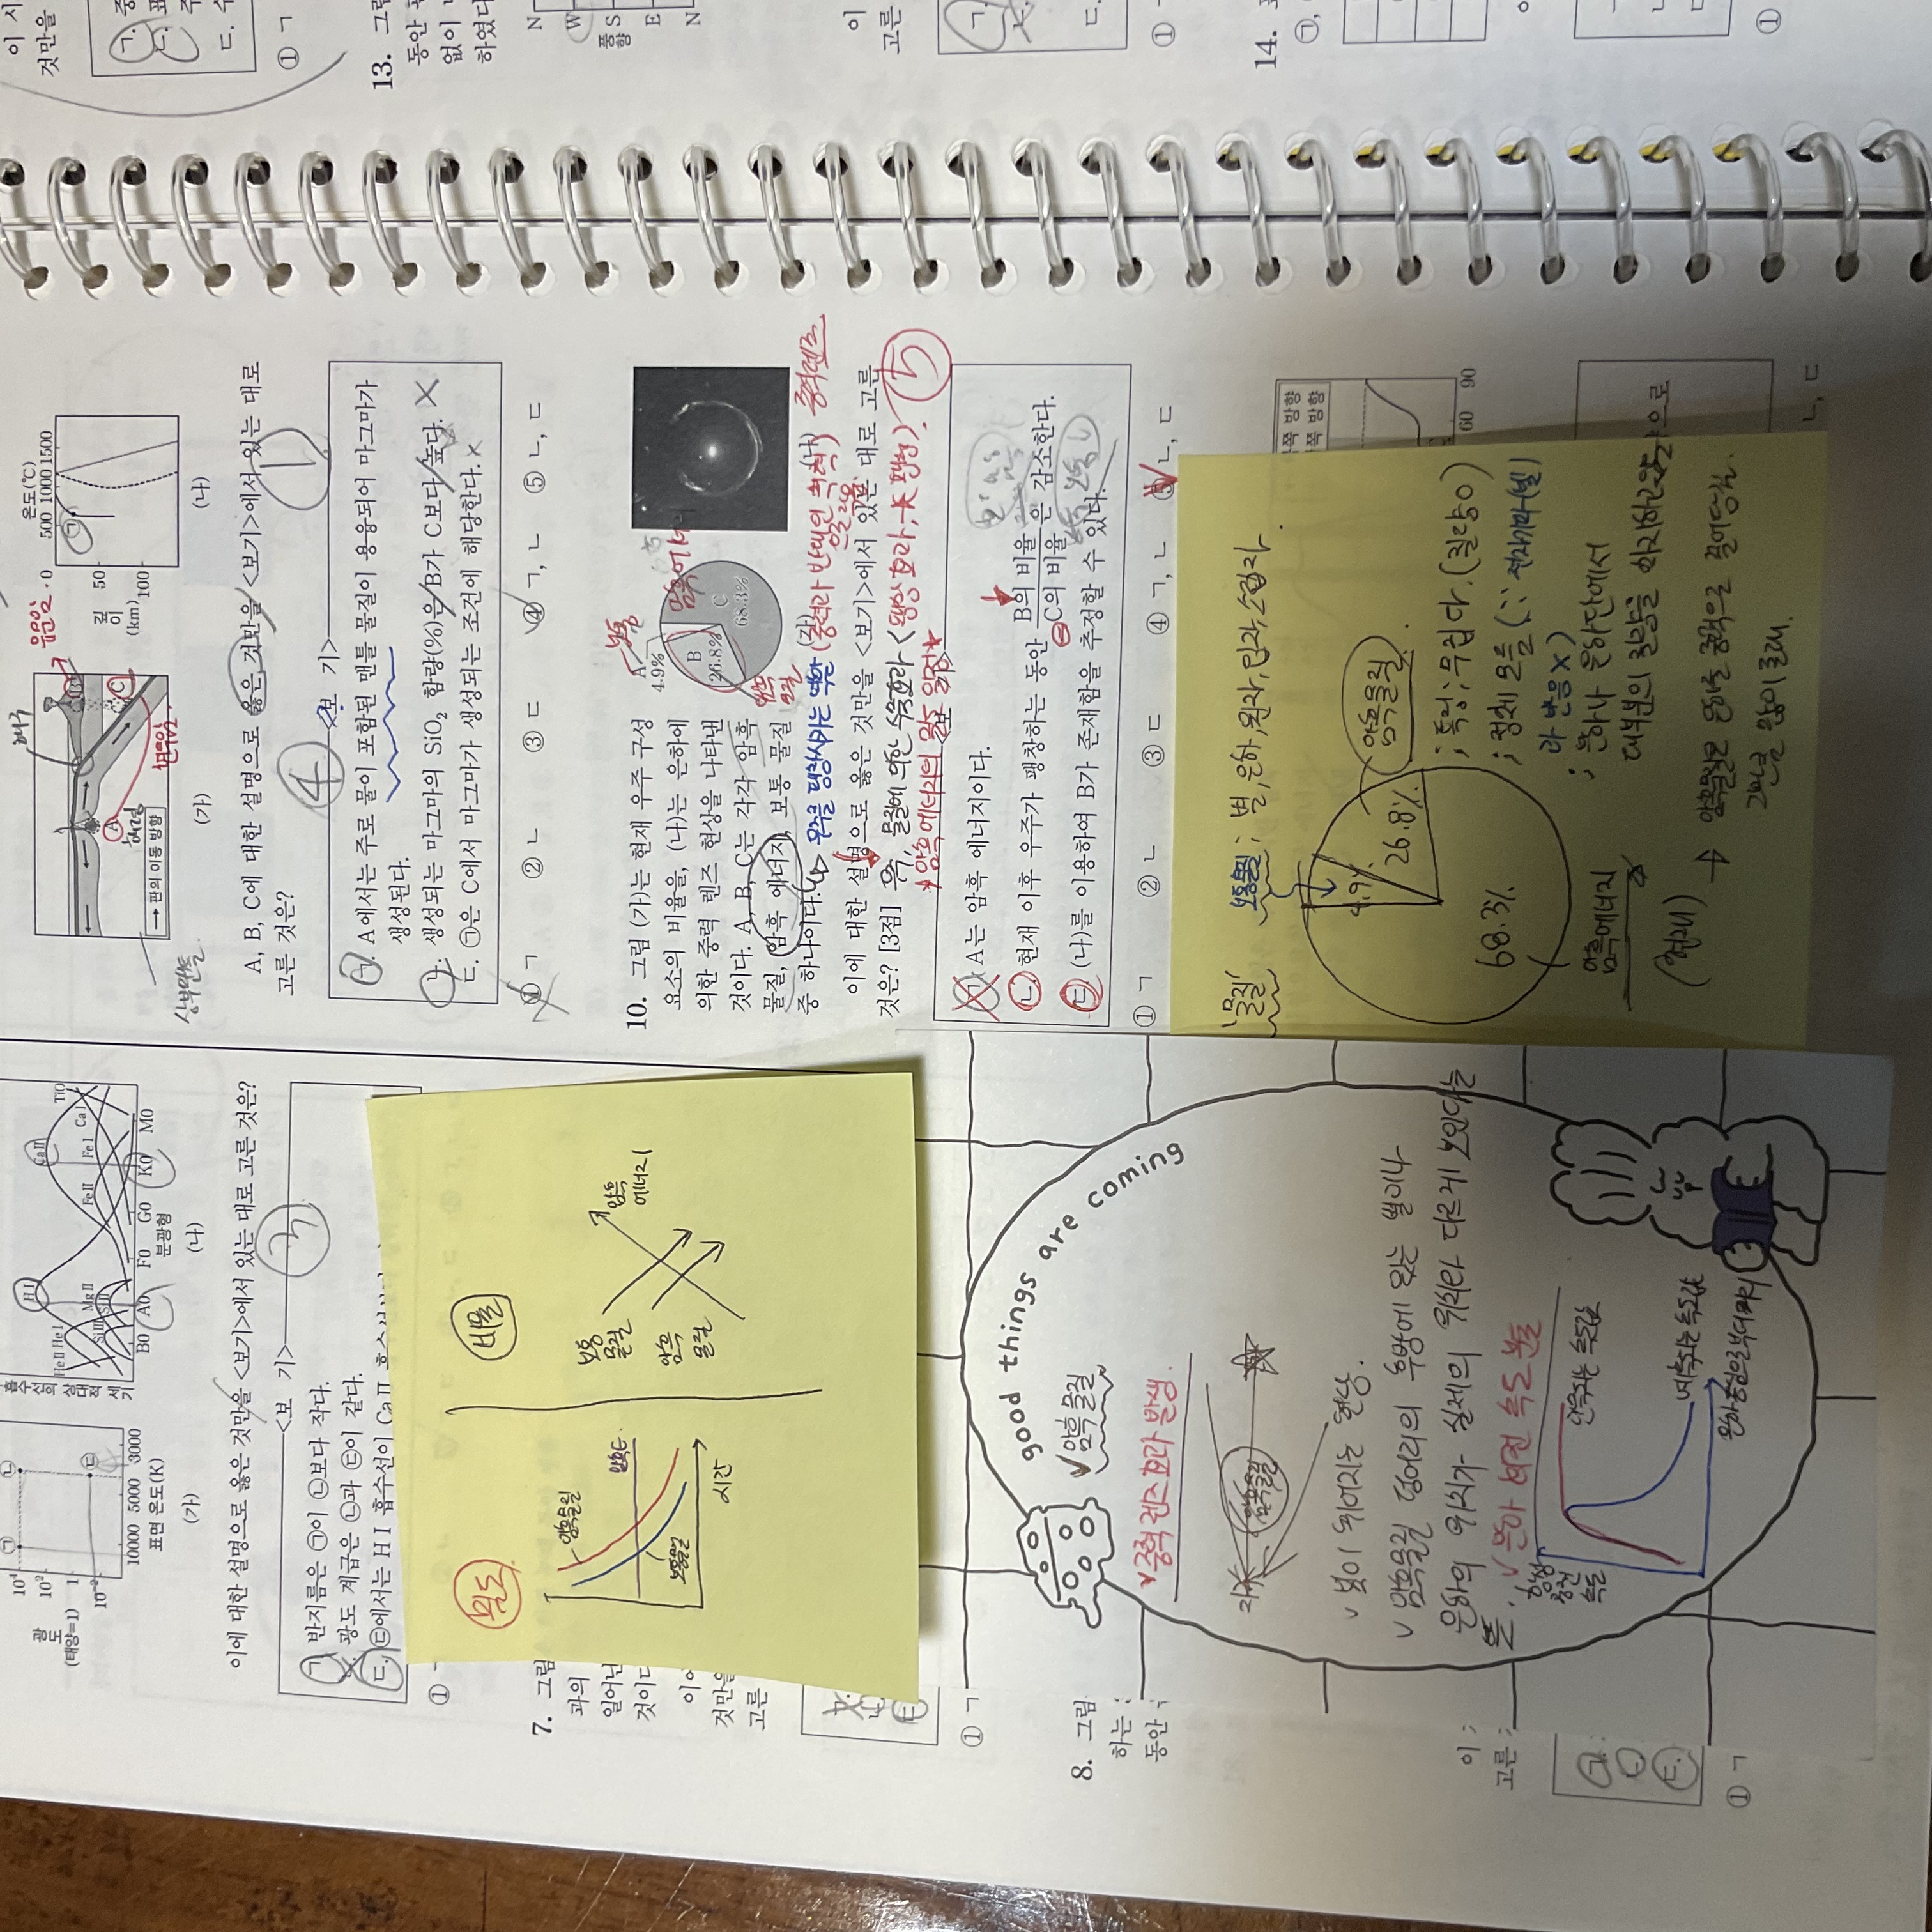 광도
(태양=1)
10⁴
10²
1
10⁻²
㉠
㉡
㉢
10000 5000 3000
표면 온도(K)
(가)
흡수선의 상대적 세기
He II He I
H I
Ca II
TiO
Si III
Mg II
Si II
Fe II
Fe I
Ca I
B0 A0 F0 G0 K0 M0
분광형
(나)
이에 대한 설명으로 옳은 것만을 <보기>에서 있는 대로 고른 것은?
<보 기>
③
ㄱ. 반지름은 ㉠이 ㉡보다 작다.
ㄴ. 광도 계급은 ㉡과 ㉢이 같다.
ㄷ. ㉢에서는 H I 흡수선이 Ca II
① ㄱ
밀도
비율
암흑물질
암흑E
보통물질
시간
보통
물질
암흑
물질
암흑
에너지
7. 그림
과의
일어난
것이다
이에
것만을
고른
① ㄱ
8. 그림
하는
동안
고른
① ㄱ
good things are coming
암흑 물질
중력 렌즈 효과 발생.
암흑물질
빛이 휘어지는 현상.
암흑물질 덩어리의 후방에 있는 별이나
은하의 위치가 실제의 위치와 다르게 보인다는
뜻.
은하 회전 속도 분포
회전
속도
관측되는 속도값
예측되는 속도값
은하 중심으로부터 거리
해구
유문암
A
B
C
해령
현무암.
상부맨틀
→ 판의 이동 방향
(가)
온도(℃)
0 500 1000 1500
㉠
50
100
깊이
(km)
(나)
A, B, C에 대한 설명으로 옳은 것만을 <보기>에서 있는 대로
고른 것은?
④
①
<보 기>
ㄱ. A에서는 주로 물이 포함된 맨틀 물질이 용융되어 마그마가
생성된다.
ㄴ. 생성되는 마그마의 SiO₂ 함량(%)은 B가 C보다 높다.
ㄷ. ㉠은 C에서 마그마가 생성되는 조건에 해당한다.
① ㄱ ② ㄴ ③ ㄷ ④ ㄱ, ㄴ ⑤ ㄴ, ㄷ
10. 그림 (가)는 현재 우주 구성
요소의 비율을, (나)는 은하에
의한 중력 렌즈 현상을 나타낸
것이다. A, B, C는 각각 암흑
물질, 암흑 에너지, 보통 물질
중 하나이다.
보통
A
4.9%
B
26.8%
C
68.3%
암흑에너지
암흑
물질
(가)
(나)
중력렌즈
우주를 팽창시키는 역할 (중력과 반대인 척력)
으로 작용
이에 대한 설명으로 옳은 것만을 <보기>에서 있는 대로 고른
것은? [3점]
즉, 물질에 의한 수축효과 < 팽창 효과
암흑에너지의 밀도 일정
⑤
<보 기>
ㄱ. A는 암흑 에너지이다.
ㄴ. 현재 이후 우주가 팽창하는 동안 B의 비율/C의 비율 은 감소한다.
ㄷ. (나)를 이용하여 B가 존재함을 추정할 수 있다.
① ㄱ ② ㄴ ③ ㄷ ④ ㄱ, ㄴ ⑤ ㄴ, ㄷ
'물질'
보통물질 ; 별, 은하, 원자, 입자, 소립자.
4.9%
26.8%
68.3%
암흑물질
; 특징 ; 무겁다. (질량 O)
; 정체 모름 (∵ 전자기파(빛)
과 반응 X)
; 은하나 은하단에서
대부분의 질량을 차지하고있음
암흑에너지
(현재)
→ 암흑물질은 은하를 중력으로 끌어당김.
그만큼 많이 존재.
쪽 방향
쪽 방향
60 90
으로
ㄴ, ㄷ
이 시
것만을
ㄱ. 중
ㄴ. 표
주
ㄷ. 수
① ㄱ
13. 그림
동안 관
없이
하였다
N
W
S
E
N
풍향
이
고른
ㄱ.
ㄷ.
①
14. 표
㉠,
①